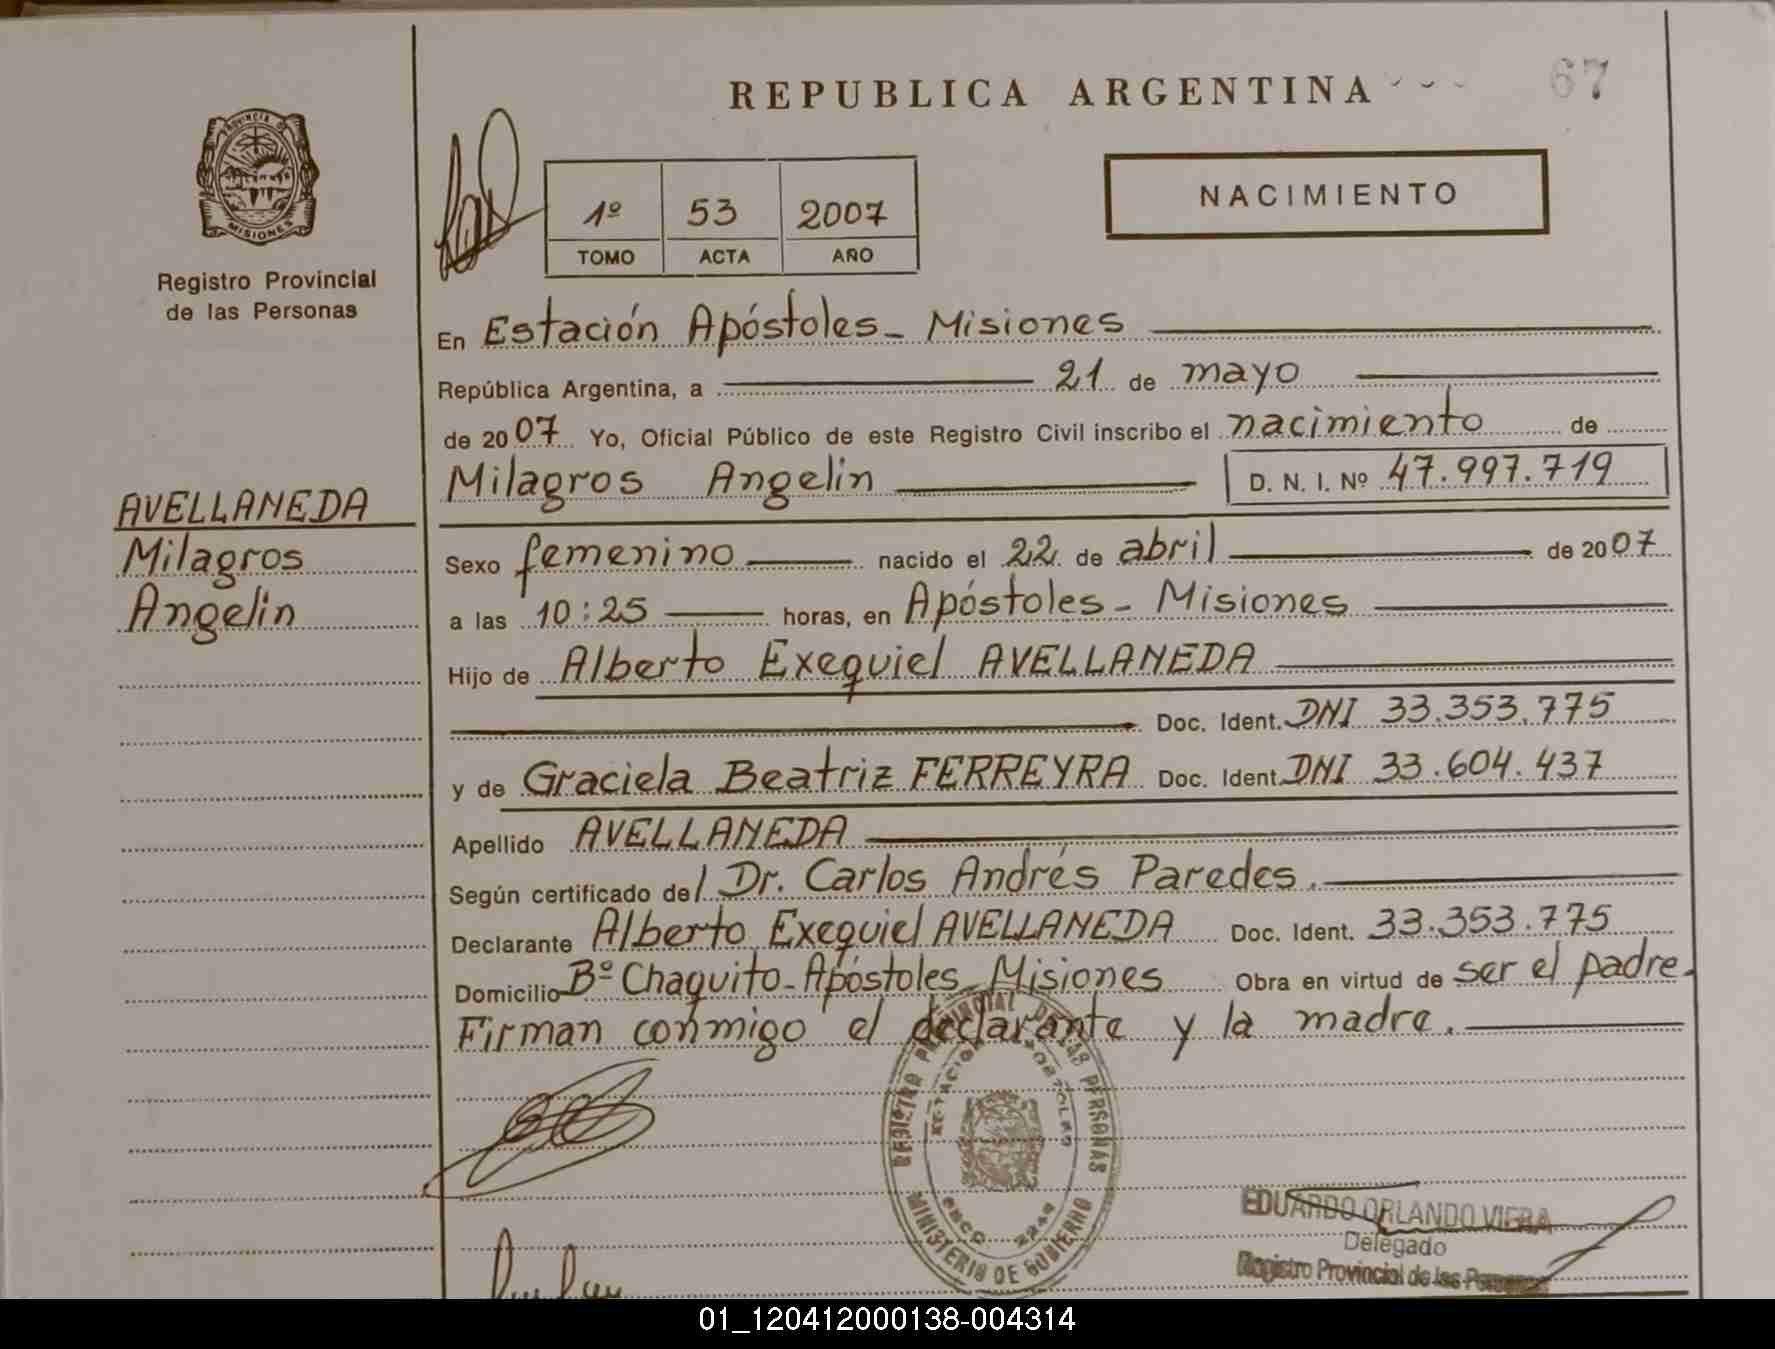 REPUBLICA ARGENTINA
67
PROVINCIA DE
MISIONES
Registro Provincial
de las Personas
1º 53 2007
TOMO ACTA AÑO
NACIMIENTO
En Estación Apóstoles - Misiones
República Argentina, a 21 de mayo
de 2007 Yo, Oficial Público de este Registro Civil inscribo el nacimiento de
Milagros Angelin D. N. I. Nº 47.997.719
AVELLANEDA
Milagros
Angelin
Sexo femenino nacido el 22 de abril de 2007
a las 10:25 horas, en Apóstoles - Misiones
Hijo de Alberto Exequiel AVELLANEDA
Doc. Ident. DNI 33.353.775
y de Graciela Beatriz FERREYRA Doc. Ident DNI 33.604.437
Apellido AVELLANEDA
Según certificado del Dr. Carlos Andrés Paredes.
Declarante Alberto Exequiel AVELLANEDA Doc. Ident. 33.353.775
Domicilio Bº Chaquito - Apóstoles - Misiones Obra en virtud de ser el padre.
Firman conmigo el declarante y la madre.
REGISTRO PROVINCIAL DE LAS PERSONAS
ESTACION APOSTOLES
MINISTERIO DE GOBIERNO
EDUARDO ORLANDO VIERA
Delegado
Registro Provincial de las Personas
01_120412000138-004314